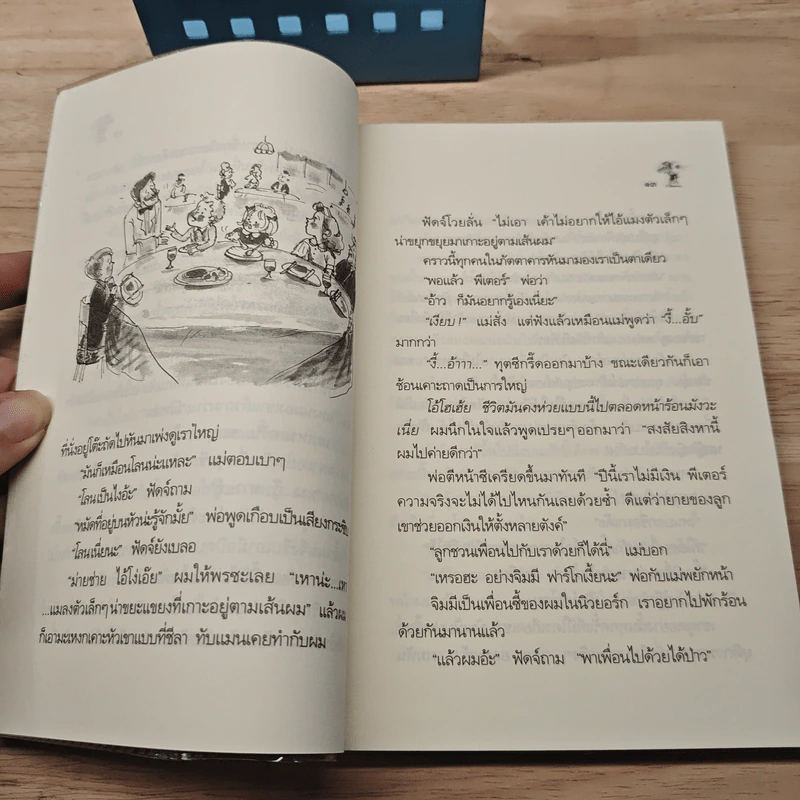 ที่นั่งอยู่โต๊ะถัดไปหันมาเพ่งดูเราใหญ่
“มันก็เหมือนโลนน่ะแหละ” แม่ตอบเบาๆ
“โลนเป็นไงอ้ะ” ฟัดจ์ถาม
“หมัดที่อยู่บนหัวน่ะรู้จักมั้ย” พ่อพูดเกือบเป็นเสียงกระซิบ
“โลนเนี่ยนะ” ฟัดจ์ยังเบลอ
“ม่ายช่าย ไอ้โง่เอ๊ย” ผมให้พรซะเลย “เหาน่ะ...เหา
...แมลงตัวเล็กๆ น่าขยะแขยงที่เกาะอยู่ตามเส้นผม” แล้วผม
ก็เอามะเหงกเคาะหัวเขาแบบที่ชีลา ทับแมนเคยทำกับผม
๑๓
ฟัดจ์โวยลั่น “ไม่เอา เค้าไม่อยากให้ไอ้แมงตัวเล็กๆ
น่าขยุกขยุยมาเกาะอยู่ตามเส้นผม”
คราวนี้ทุกคนในภัตตาคารหันมามองเราเป็นตาเดียว
“พอแล้ว พีเตอร์” พ่อว่า
“อ้าว ก็มันอยากรู้เองเนี่ยะ”
“เงียบ!” แม่สั่ง แต่ฟังแล้วเหมือนแม่พูดว่า “งี้...อั้บ”
มากกว่า
“งี้...อ้าาา...” ทุตซีกรี๊ดออกมาบ้าง ขณะเดียวกันก็เอา
ช้อนเคาะถาดเป็นการใหญ่
โอ้โฮเฮ้ย ชีวิตมันคงห่วยแบบนี้ไปตลอดหน้าร้อนมังวะ
เนี่ย ผมนึกในใจแล้วพูดเปรยๆ ออกมาว่า “สงสัยสิงหานี้
ผมไปค่ายดีกว่า”
พ่อตีหน้าซีเครียดขึ้นมาทันที “ปีนี้เราไม่มีเงิน พีเตอร์
ความจริงจะไม่ได้ไปไหนกันเลยด้วยซ้ำ ดีแต่ว่ายายของลูก
เขาช่วยออกเงินให้ตั้งหลายตังค์”
“ลูกชวนเพื่อนไปกับเราด้วยก็ได้นี่” แม่บอก
“เหรอฮะ อย่างจิมมี ฟาร์โกเงี้ยนะ” พ่อกับแม่พยักหน้า
จิมมีเป็นเพื่อนซี้ของผมในนิวยอร์ก เราอยากไปพักร้อน
ด้วยกันมานานแล้ว
“แล้วผมอ้ะ” ฟัดจ์ถาม “พาเพื่อนไปด้วยได้ป่าว”